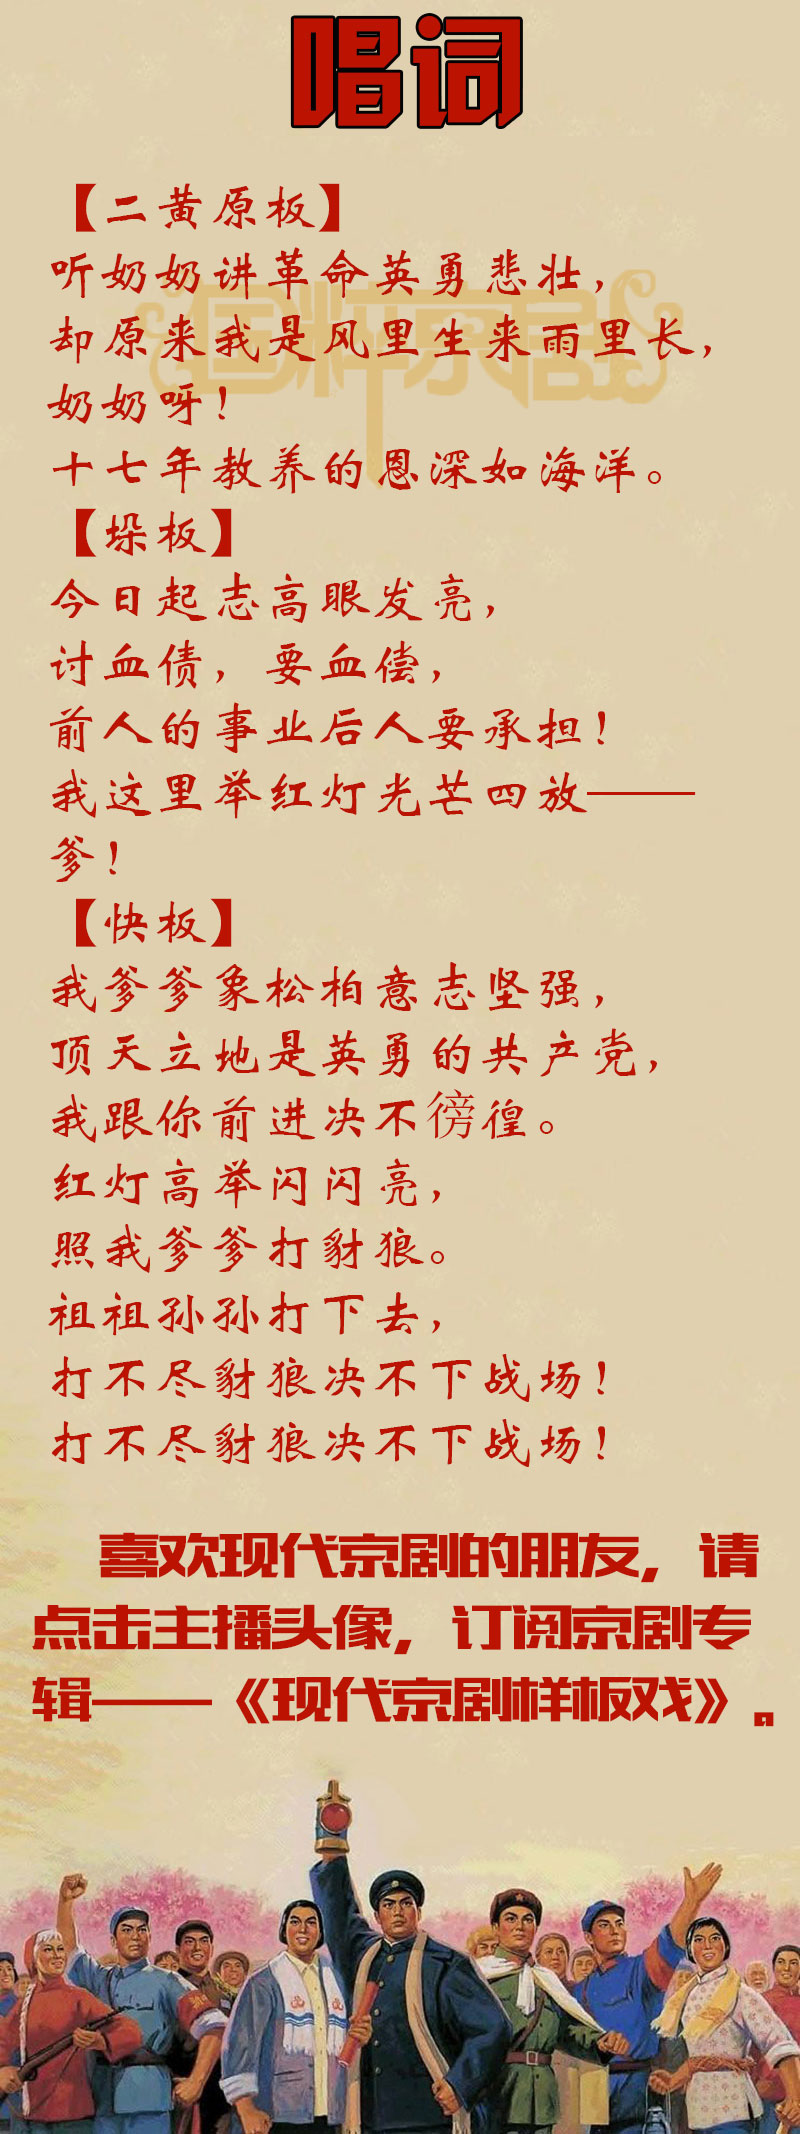 唱词
【二黄原板】
听奶奶讲革命英勇悲壮，
国粹京剧
却原来我是风里生来雨里长，
奶奶呀！
十七年教养的恩深如海洋。
【垛板】
今日起志高眼发亮，
讨血债，要血偿，
前人的事业后人要承担！
我这里举红灯光芒四放——
爹！
【快板】
我爹爹象松柏意志坚强，
顶天立地是英勇的共产党，
我跟你前进决不徬徨。
红灯高举闪闪亮，
照我爹爹打豺狼。
祖祖孙孙打下去，
打不尽豺狼决不下战场！
打不尽豺狼决不下战场！
喜欢现代京剧的朋友，请
点击主播头像，订阅京剧专
辑——《现代京剧样板戏》。